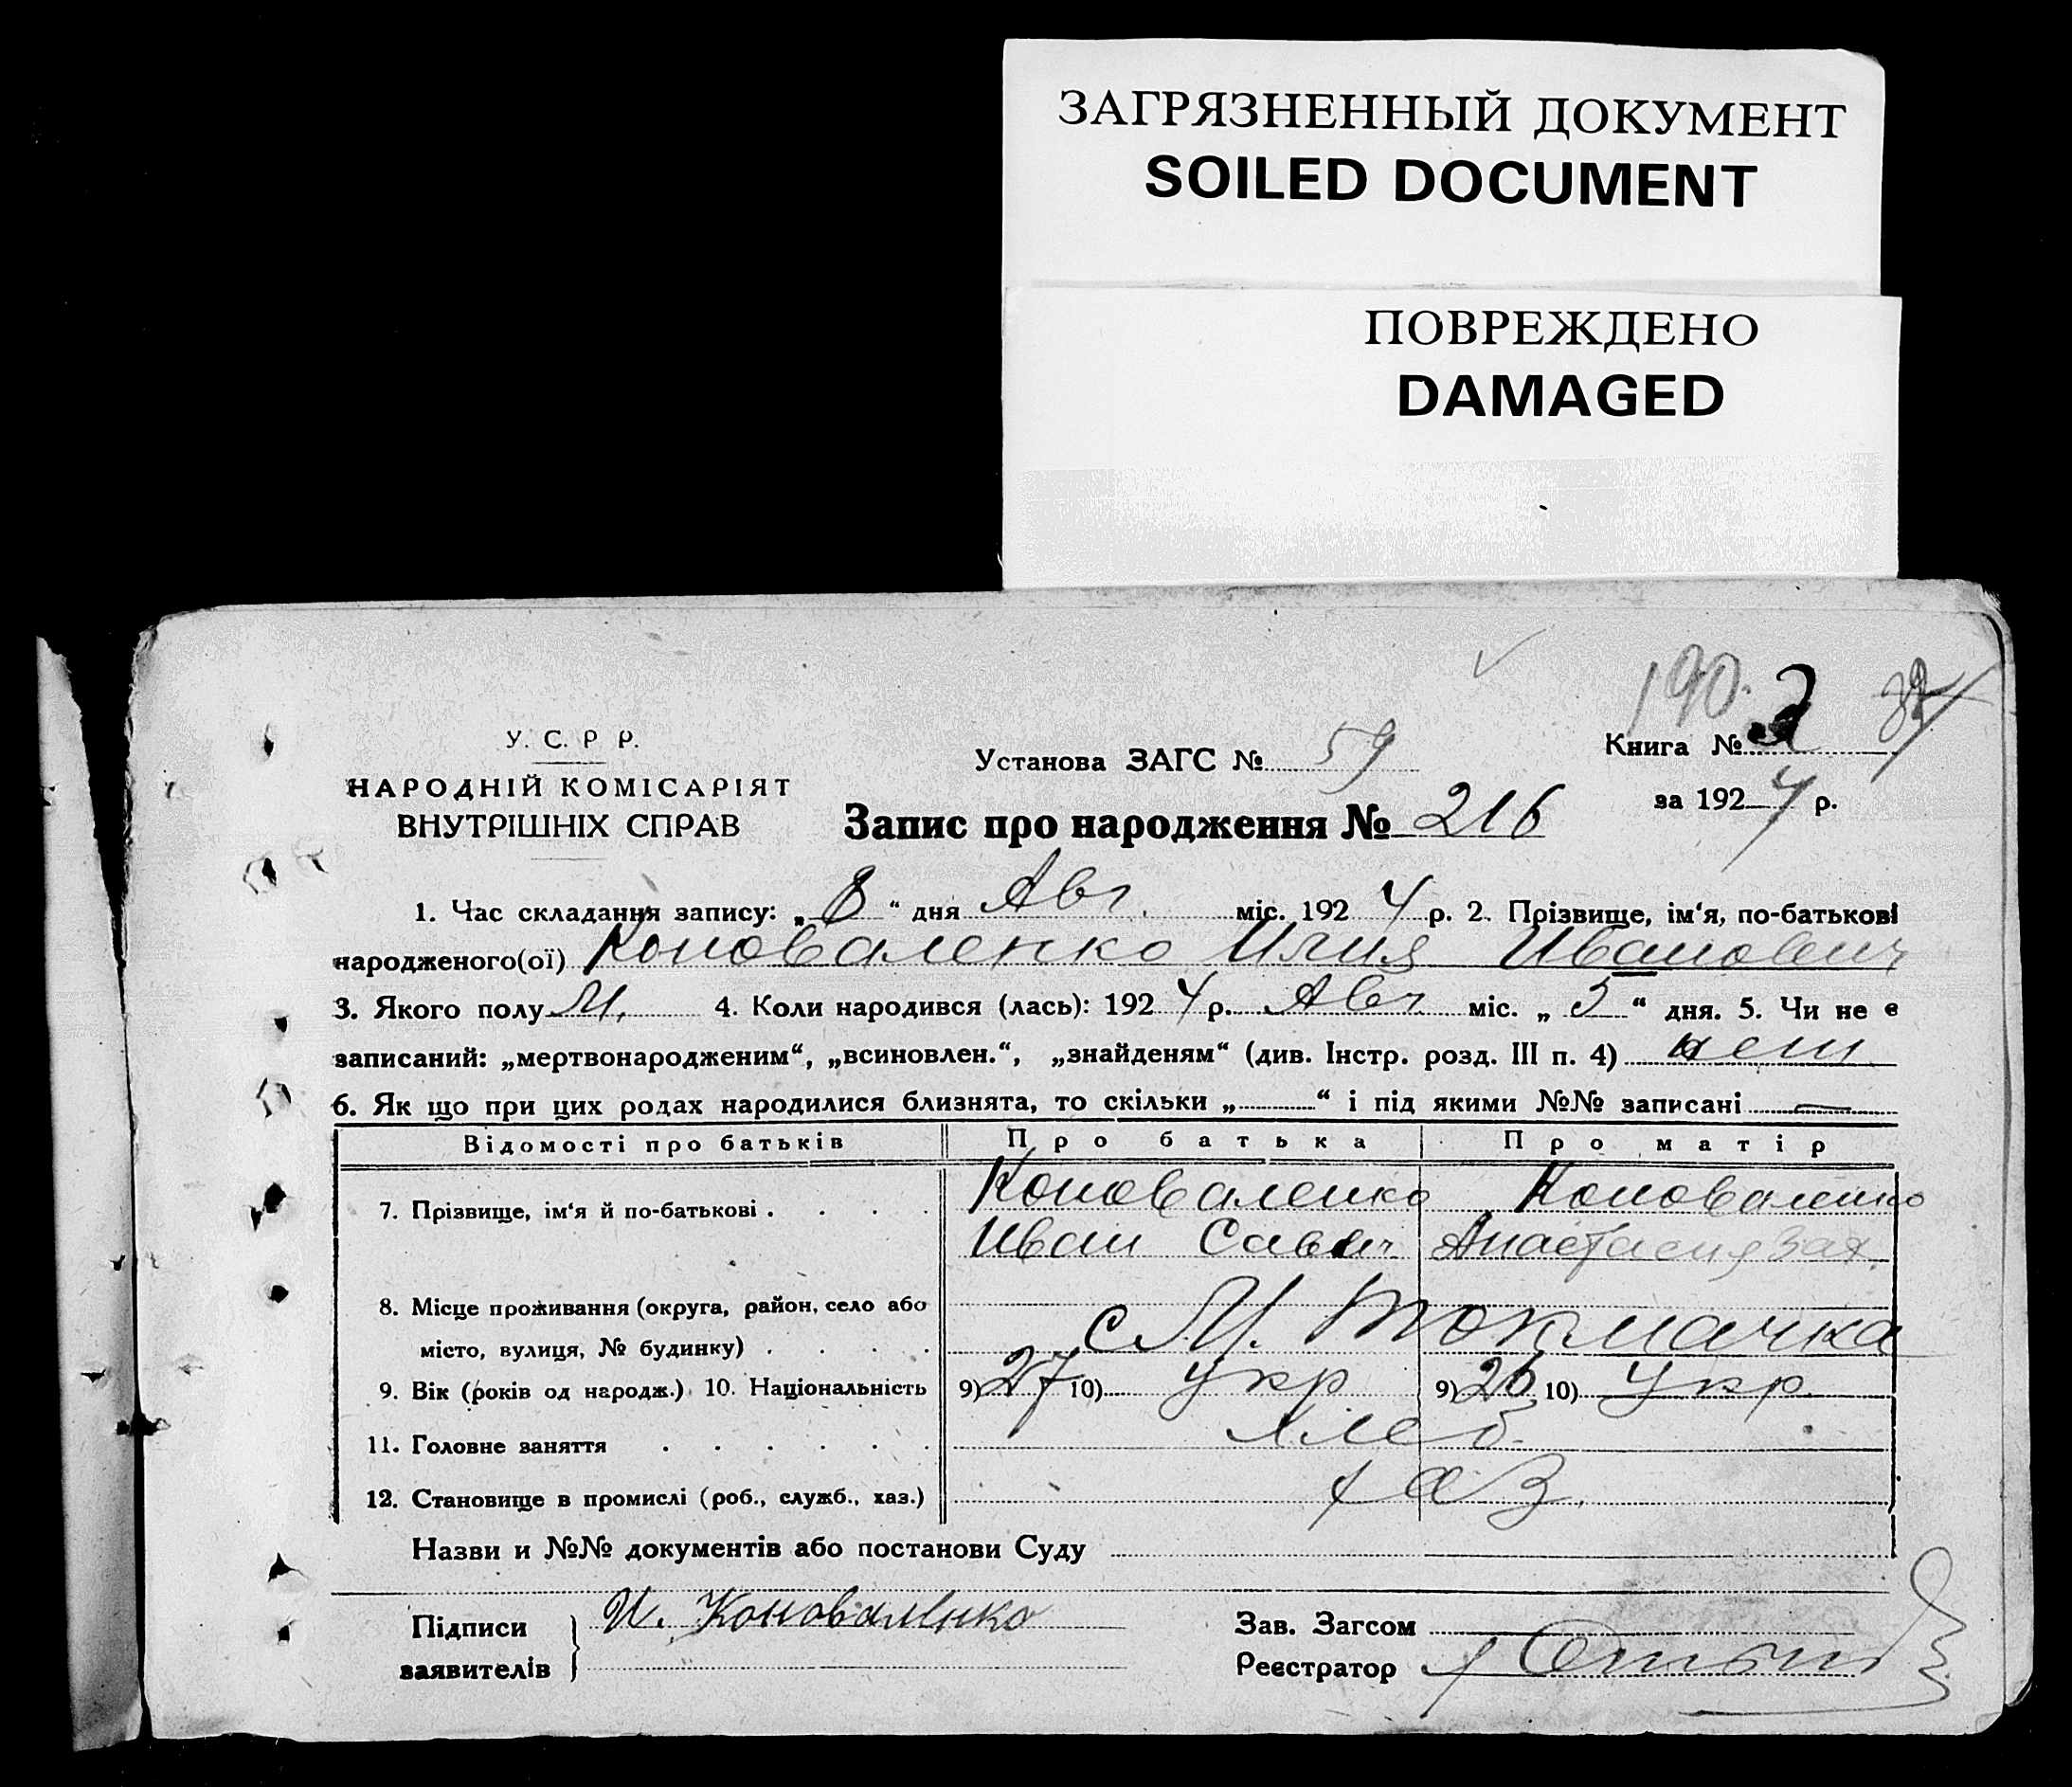 ЗАГРЯЗНЕННЫЙ ДОКУМЕНТ
SOILED DOCUMENT
ПОВРЕЖДЕНО
DAMAGED
190.
У. С. Р Р.
НАРОДНІЙ КОМІСАРІЯТ
ВНУТРІШНІХ СПРАВ
Установа ЗАГС № 59
Книга № 2
за 1924 р.
Запис про народження № 216
1. Час складання запису: „8“ дня Авг. міс. 1924 р. 2. Прізвище, ім‘я, по-батькові
народженого(ої) Коноваленко Илия Иванович
3. Якого полу М. 4. Коли народився (лась): 1924 р. Авг. міс. „5“ дня. 5. Чи не є
записаний: „мертвонародженим“, „всиновлен.“, „знайденям“ (див. Інстр. розд. III п. 4) нет
6. Як що при цих родах народилися близнята, то скільки „ “ і під якими №№ записані —
Відомості про батьків Про батька Про матір
7. Прізвище, ім‘я й по-батькові . . . . Коноваленко Коноваленко
Иван Савич Анастасия Зах.
8. Місце проживання (округа, район, село або
місто, вулиця, № будинку) . . . . с М. Токмачка
9. Вік (років од народж.) 10. Національність 9) 27 10) Укр 9) 26 10) Укр.
11. Головне заняття . . . . . . хлеб.
12. Становище в промислі (роб., служб., хаз.) хаз.
Назви и №№ документів або постанови Суду
Підписи
заявителів
И. Коноваленко
Зав. Загсом
Реєстратор